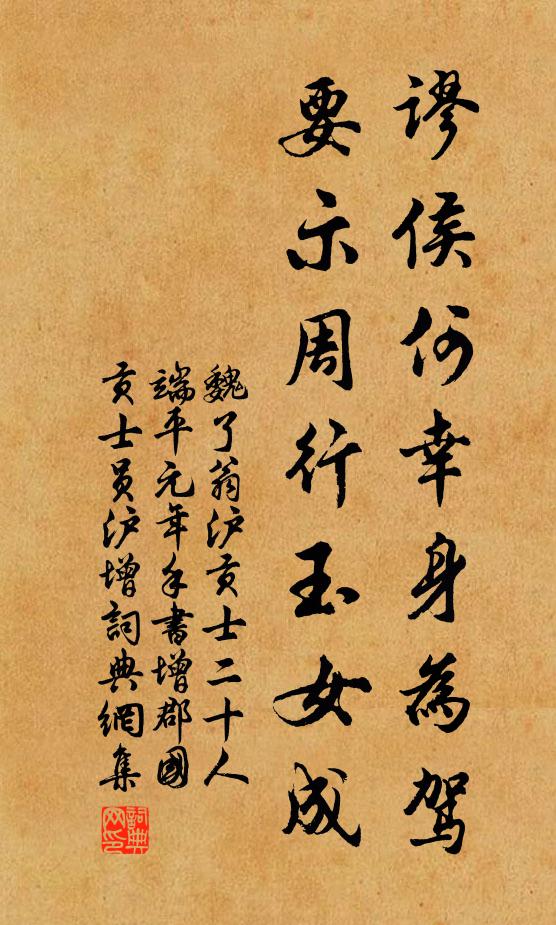 谬侯何幸身為驾
要示周行玉女成
魏了翁沪贡士二十人
端平元年手書增郡國
贡士员沪增詞典網集
詞典网印